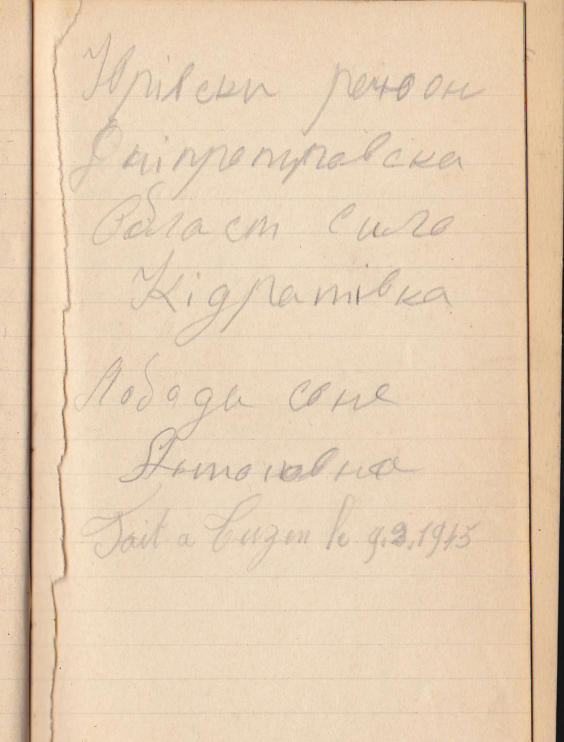 Юрівски рейоон
Дніпроптровска
Област Сило
Кідратівка
Лобади соне
Антоновна
Fait a le 9.3.1945